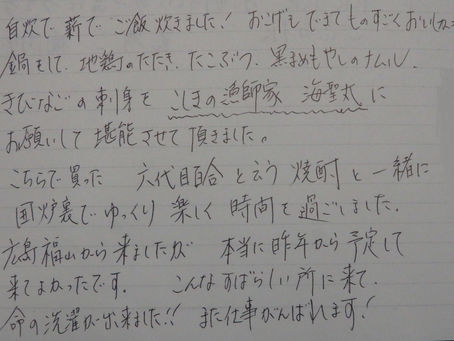 自炊で 薪で ご飯炊きました! おこげもできてものすごくおいしかった
鍋をして、地鶏のたたき、たこぶつ、黒まめもやしのナムル、
きびなごの刺身を こしきの漁師家 海聖丸 に
お願いして堪能させて頂きました。
こちらで買った 六代目百合 と云う 焼酎 と 一緒に
囲炉裏で ゆっくり 楽しく 時間を過ごしました。
広島福山から来ましたが 本当に昨年から予定して
来てよかったです。 こんなすばらしい所に来て、
命の洗濯が出来ました!! また仕事がんばれます!